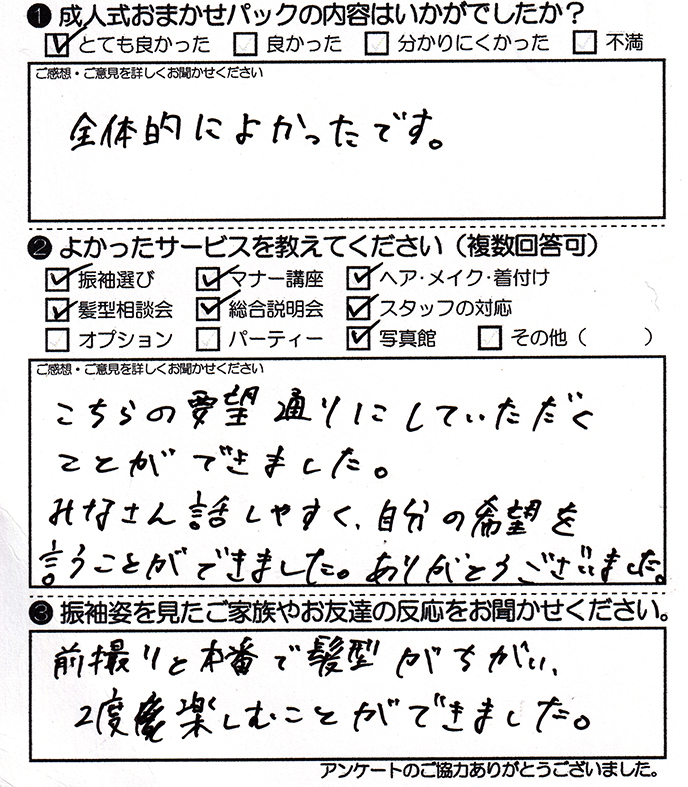 ❶ 成人式おまかせパックの内容はいかがでしたか？
☑ とても良かった □ 良かった □ 分かりにくかった □ 不満
ご感想・ご意見を詳しくお聞かせください
全体的によかったです。
❷ よかったサービスを教えてください（複数回答可）
☑ 振袖選び ☑ マナー講座 ☑ ヘア・メイク・着付け
☑ 髪型相談会 ☑ 総合説明会 ☑ スタッフの対応
□ オプション □ パーティー ☑ 写真館 □ その他（　　）
ご感想・ご意見を詳しくお聞かせください
こちらの要望通りにしていただく
ことができました。
みなさん話しやすく、自分の希望を
言うことができました。ありがとうございました。
❸ 振袖姿を見たご家族やお友達の反応をお聞かせください。
前撮りと本番で髪型がちがい、
2度楽しむことができました。
アンケートのご協力ありがとうございました。